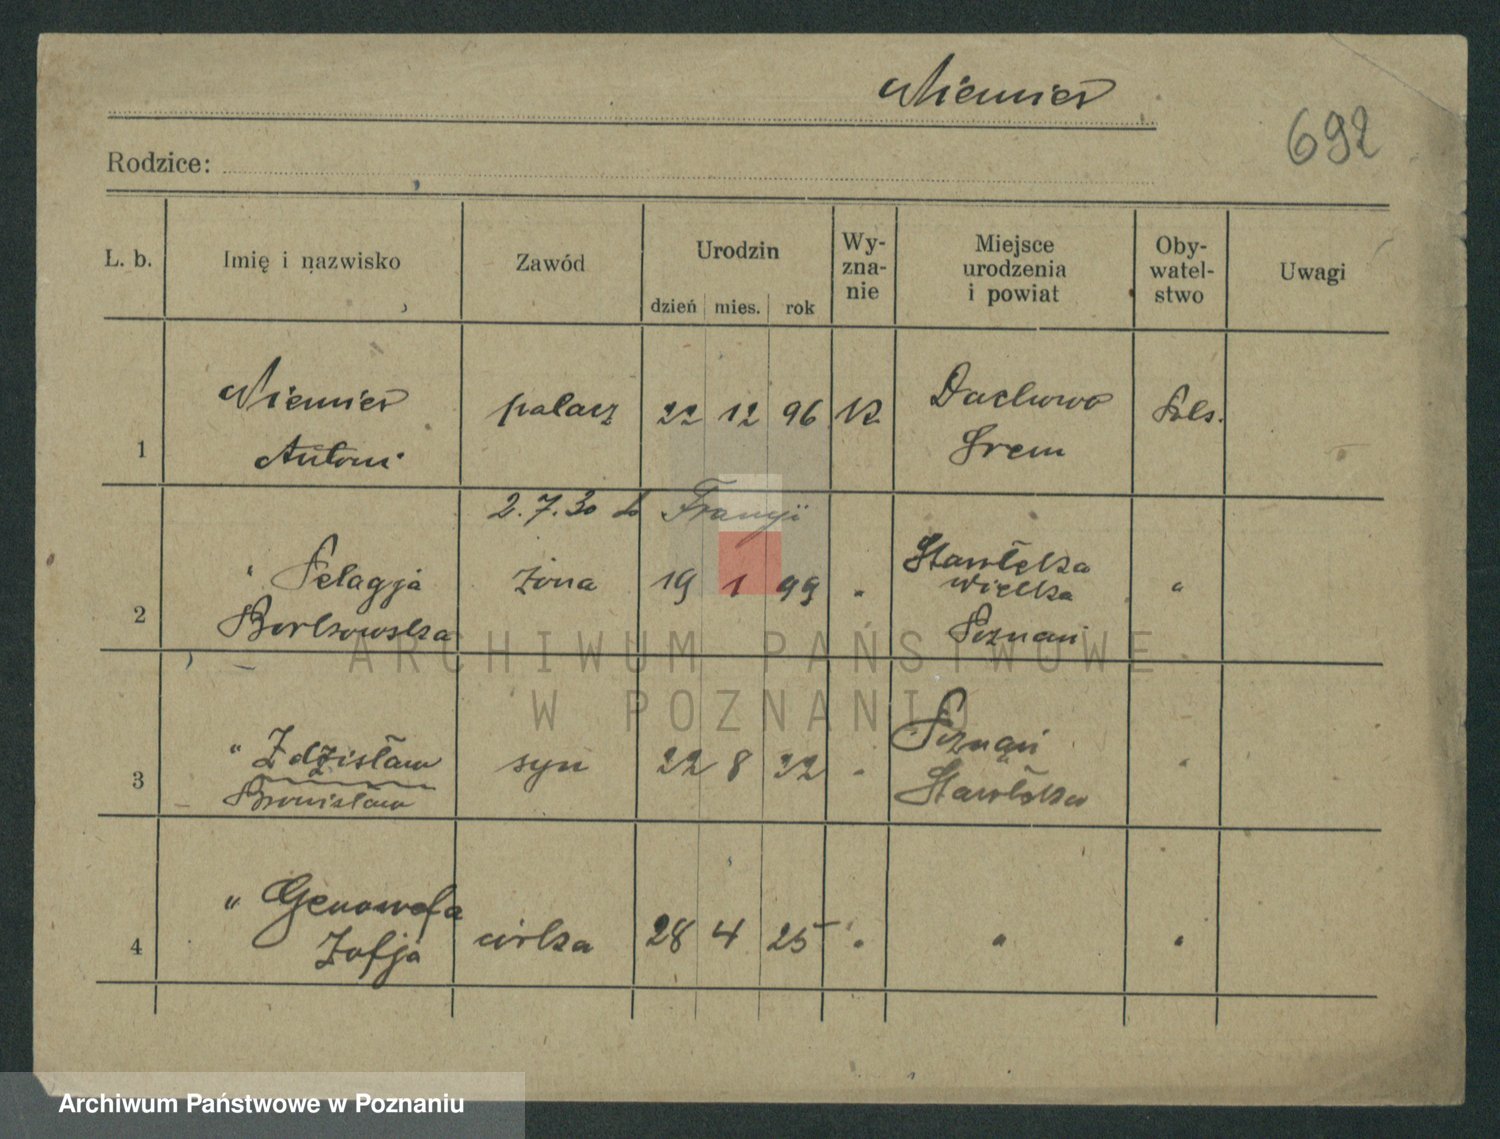 Niemier
692
Rodzice:
L. b.
Imię i nazwisko
Zawód
Urodzin
dzień mies. rok
Wy-
zna-
nie
Miejsce
urodzenia
i powiat
Oby-
watel-
stwo
Uwagi
1
Niemier
Antoni
palacz
22 12 96
K
Dachowo
Śrem
Pols.
2.7.30 do Francji
2
" Pelagja
Borkowska
żona
19 1 99
"
Starołęka
wielka
Poznań
"
3
" Zdzisław
Bronisław
syn
22 8 22
"
Poznań
Starołęka
"
4
" Genowefa
Zofja
córka
28 4 25
"
"
"
ARCHIWUM PAŃSTWOWE
W POZNANIU
Archiwum Państwowe w Poznaniu